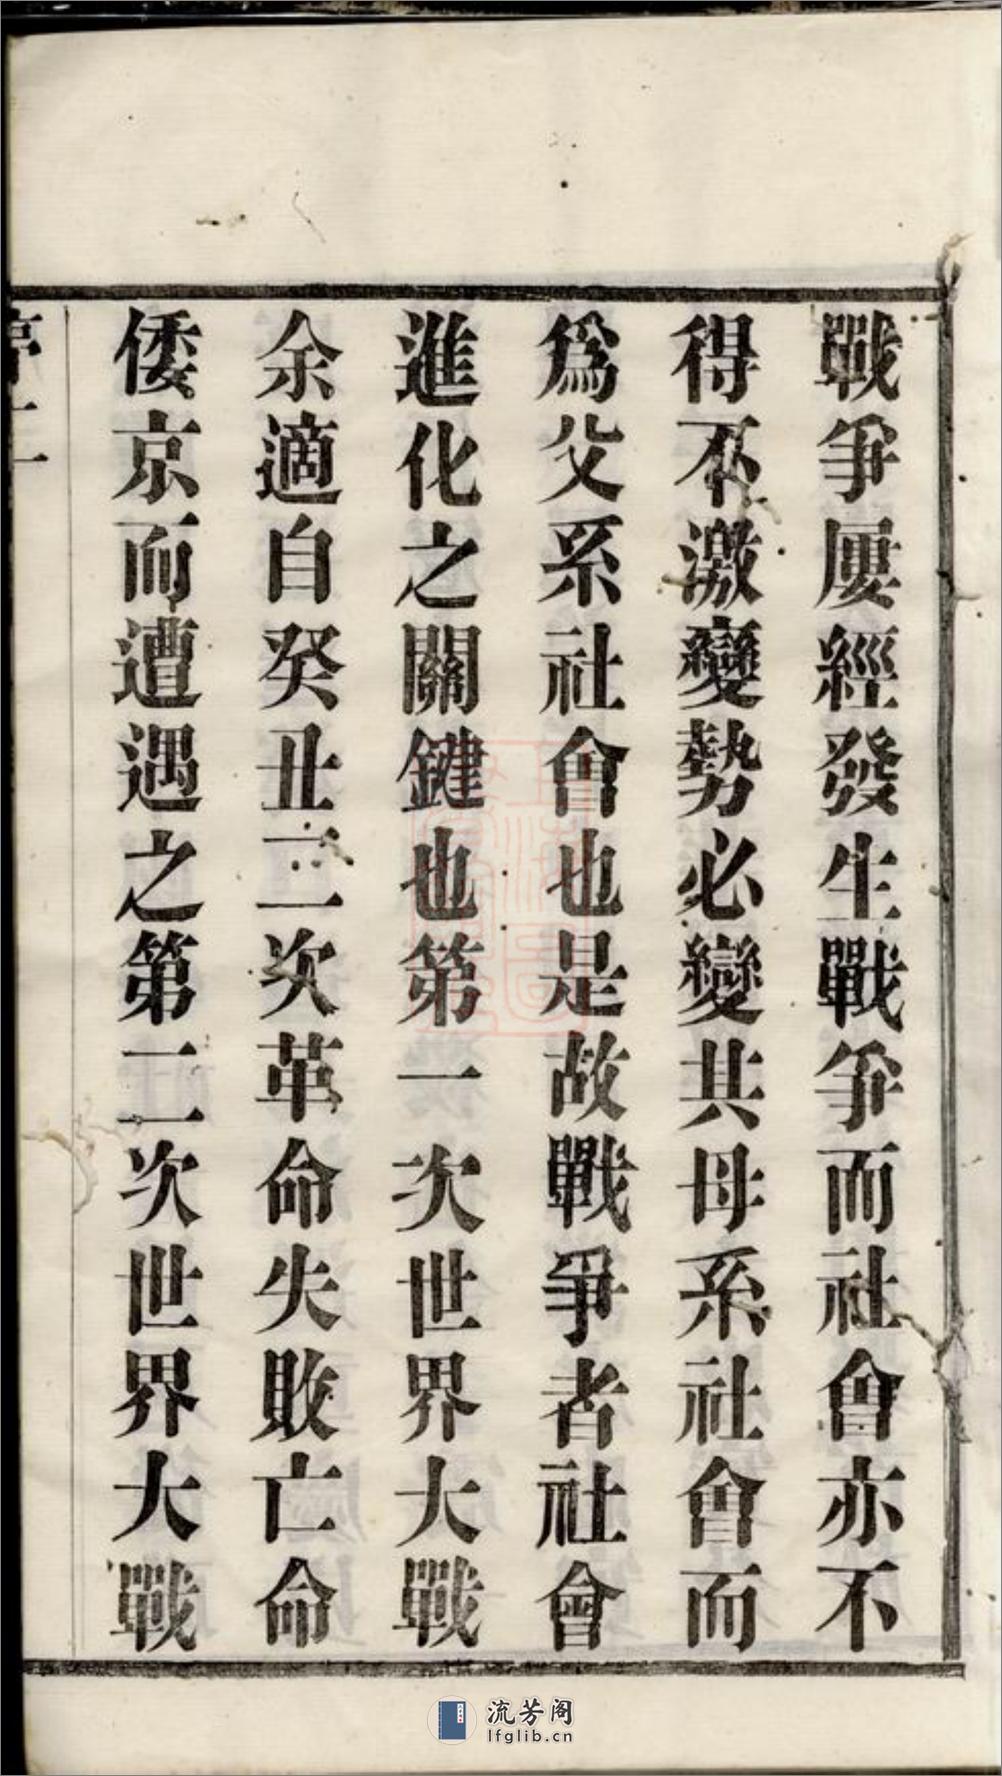 戰爭屢經發生戰爭而社會亦不
得不激變勢必變共母系社會而
爲父系社會也是故戰爭者社會
進化之關鍵也第一次世界大戰
余適自癸丑二次革命失敗亡命
倭京而遭遇之第二次世界大戰
流芳阁
lfglib.cn